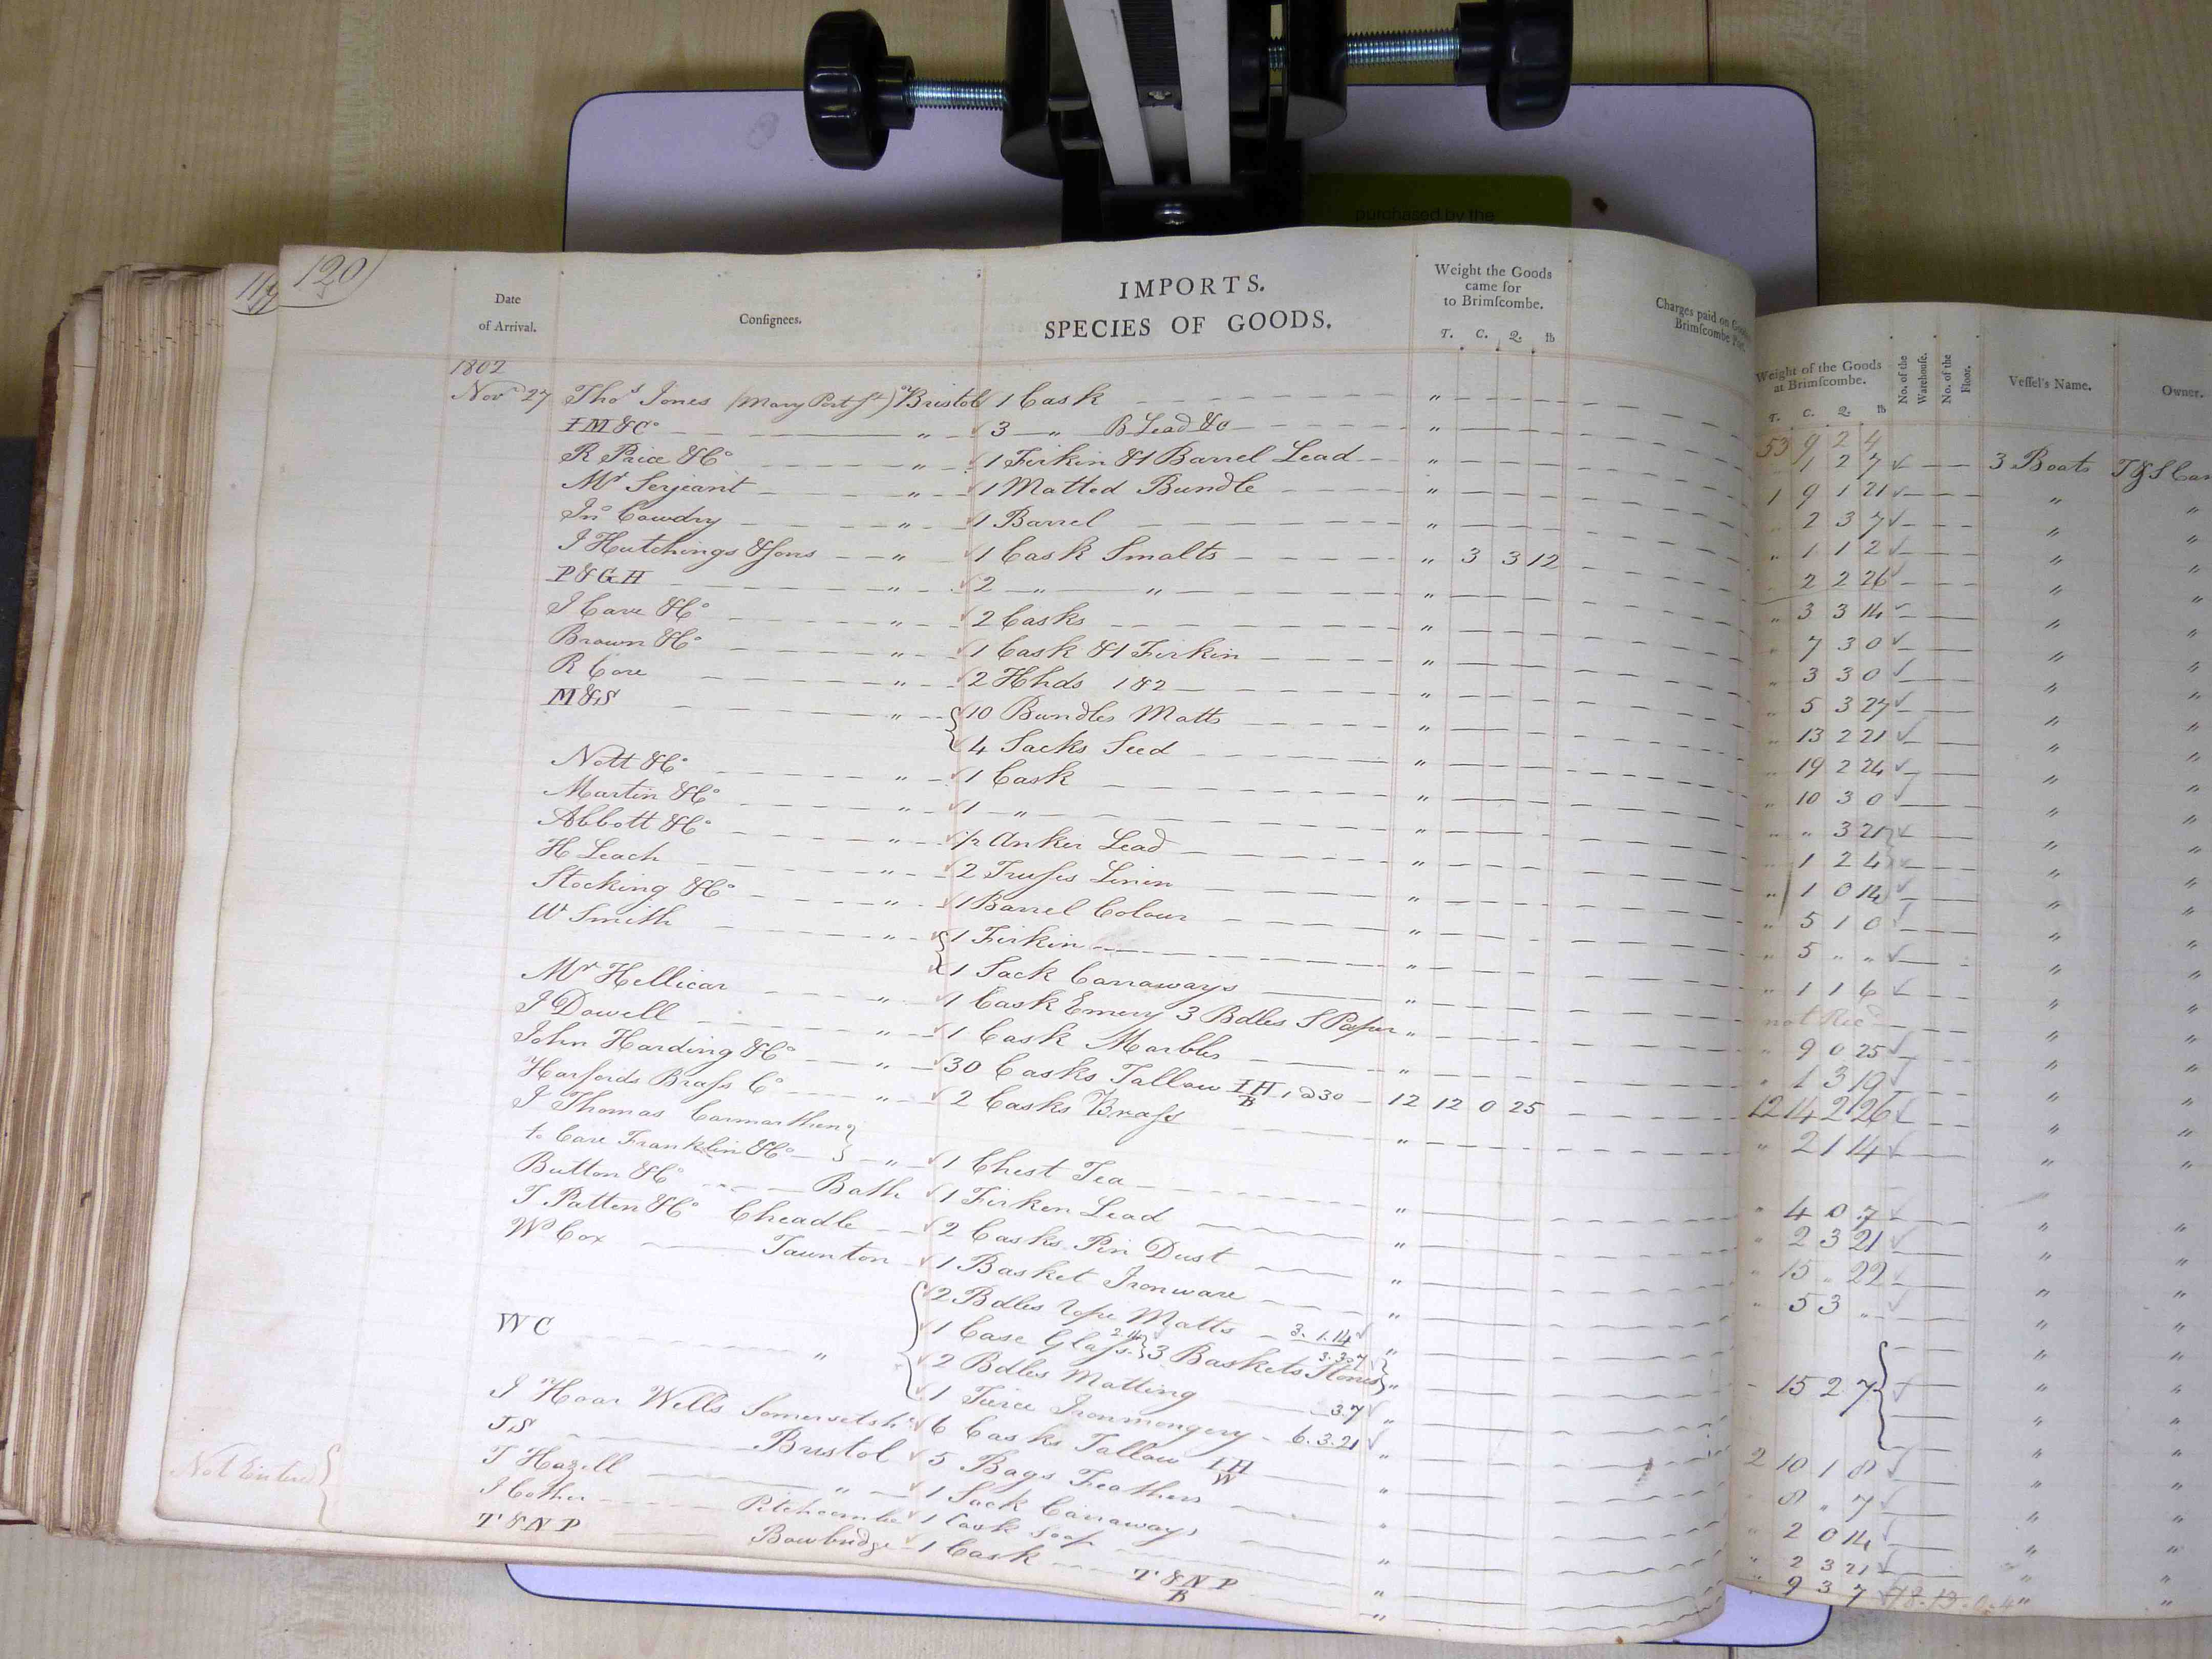 purchased by the
119
120
IMPORTS.
SPECIES OF GOODS.
Date of Arrival.
Consignees.
Weight the Goods came for to Brimscombe.
T. C. Q. lb
Charges paid on Brimscombe
Weight of the Goods at Brimscombe.
T. C. Q. lb
No. of the Warehouse.
No. of the Floor.
Vessel's Name.
Owner.
1802
53 9 2 4
Novr 27 Thos Jones (Mary Port St) Bristol 1 Cask " 1 2 7 3 Boats T & S
IM & Co " 3 " B Lead &c " 1 9 1 21 " "
R Price & Co " 1 Firkin & 1 Barrel Lead " 2 3 7 " "
Mr Serjeant " 1 Matted Bundle " " 1 1 2 " "
Jno Cowdry " 1 Barrel " 2 2 26 " "
J Hutchings & Sons " 1 Cask Smalts " 3 3 12 " 3 3 14 " "
P & G H " 2 " " " 7 3 0 " "
J Cave & Co " 2 Casks " 3 3 0 " "
Brown & Co " 1 Cask & 1 Firkin " 5 3 27 " "
R Core " 2 Hhds 1 & 2 " 13 2 21 " "
M & S " 10 Bundles Matts " 19 2 24 " "
4 Sacks Seed " 10 3 0 " "
Nott & Co " 1 Cask " " " 3 21 " "
Martin & Co " 1 " " 1 2 4 " "
Abbott & Co " 1/2 Anker Lead " 1 0 14 " "
H Leach " 2 Trusses Linen " 5 1 0 " "
Stocking & Co " 1 Barrel Colour " 5 " " " "
W Smith " 1 Firkin " 1 1 6 " "
1 Sack Carraways " not Recd " "
Mr Hellicar " 1 Cask Emery 3 Bdles S Paper " 9 0 25 " "
J Dowell " 1 Cask Marbles " 1 3 19 " "
John Harding & Co " 30 Casks Tallow IH/B 1 @ 30 12 12 0 25 12 14 2 26 " "
Harfords Brass Co " 2 Casks Brass " 2 1 14 " "
J Thomas Carmarthen
to Care Franklin & Co " 1 Chest Tea " 4 0 7 " "
Button & Co Bath 1 Firken Lead " 2 3 21 " "
T Patten & Co Cheadle 2 Casks Pin Dust " 15 " 22 " "
W Cox Taunton 1 Basket Ironware " 5 3 " " "
2 Bdles Rope Matts 3.1.14 "
WC " 1 Case Glass 3 Baskets Stones 3.3.7 " 15 2 7 " "
2 Bdles Matting 3.7 "
1 Tierce Ironmongery 6.3.21 "
J Hoar Wells Somersetshe 6 Casks Tallow IH/W " 2 10 1 8 " "
JS Bristol 5 Bags Feathers " 8 " 7 " "
Not Entered T Hazell " 1 Sack Carraways " 2 0 14 " "
J Cother Pitchcombe 1 Cask Soap " 2 3 21 " "
T & N P Bowbridge 1 Cask T & N P/B " 9 3 7 " "